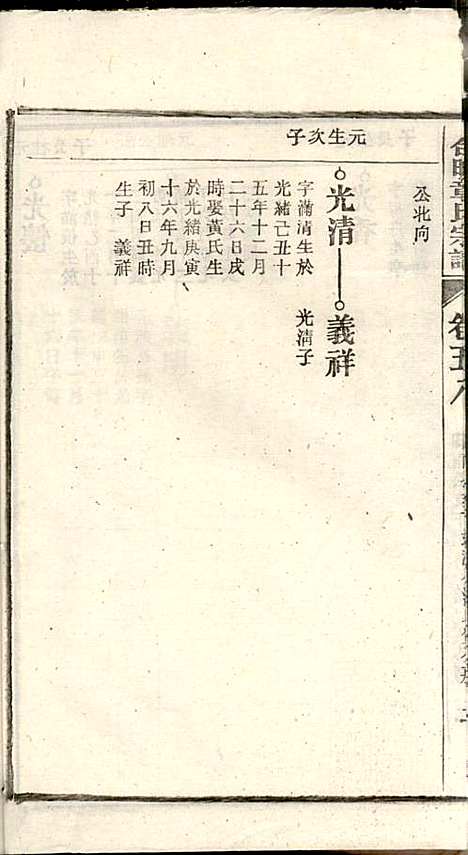 章氏宗譜
卷五八
公北向
元生次子
光清
義祥
字滿清生於
光緒己丑十
五年十二月
二十六日戌
時娶黃氏生
於光緒庚寅
十六年九月
初八日丑時
生子 義祥
光清子